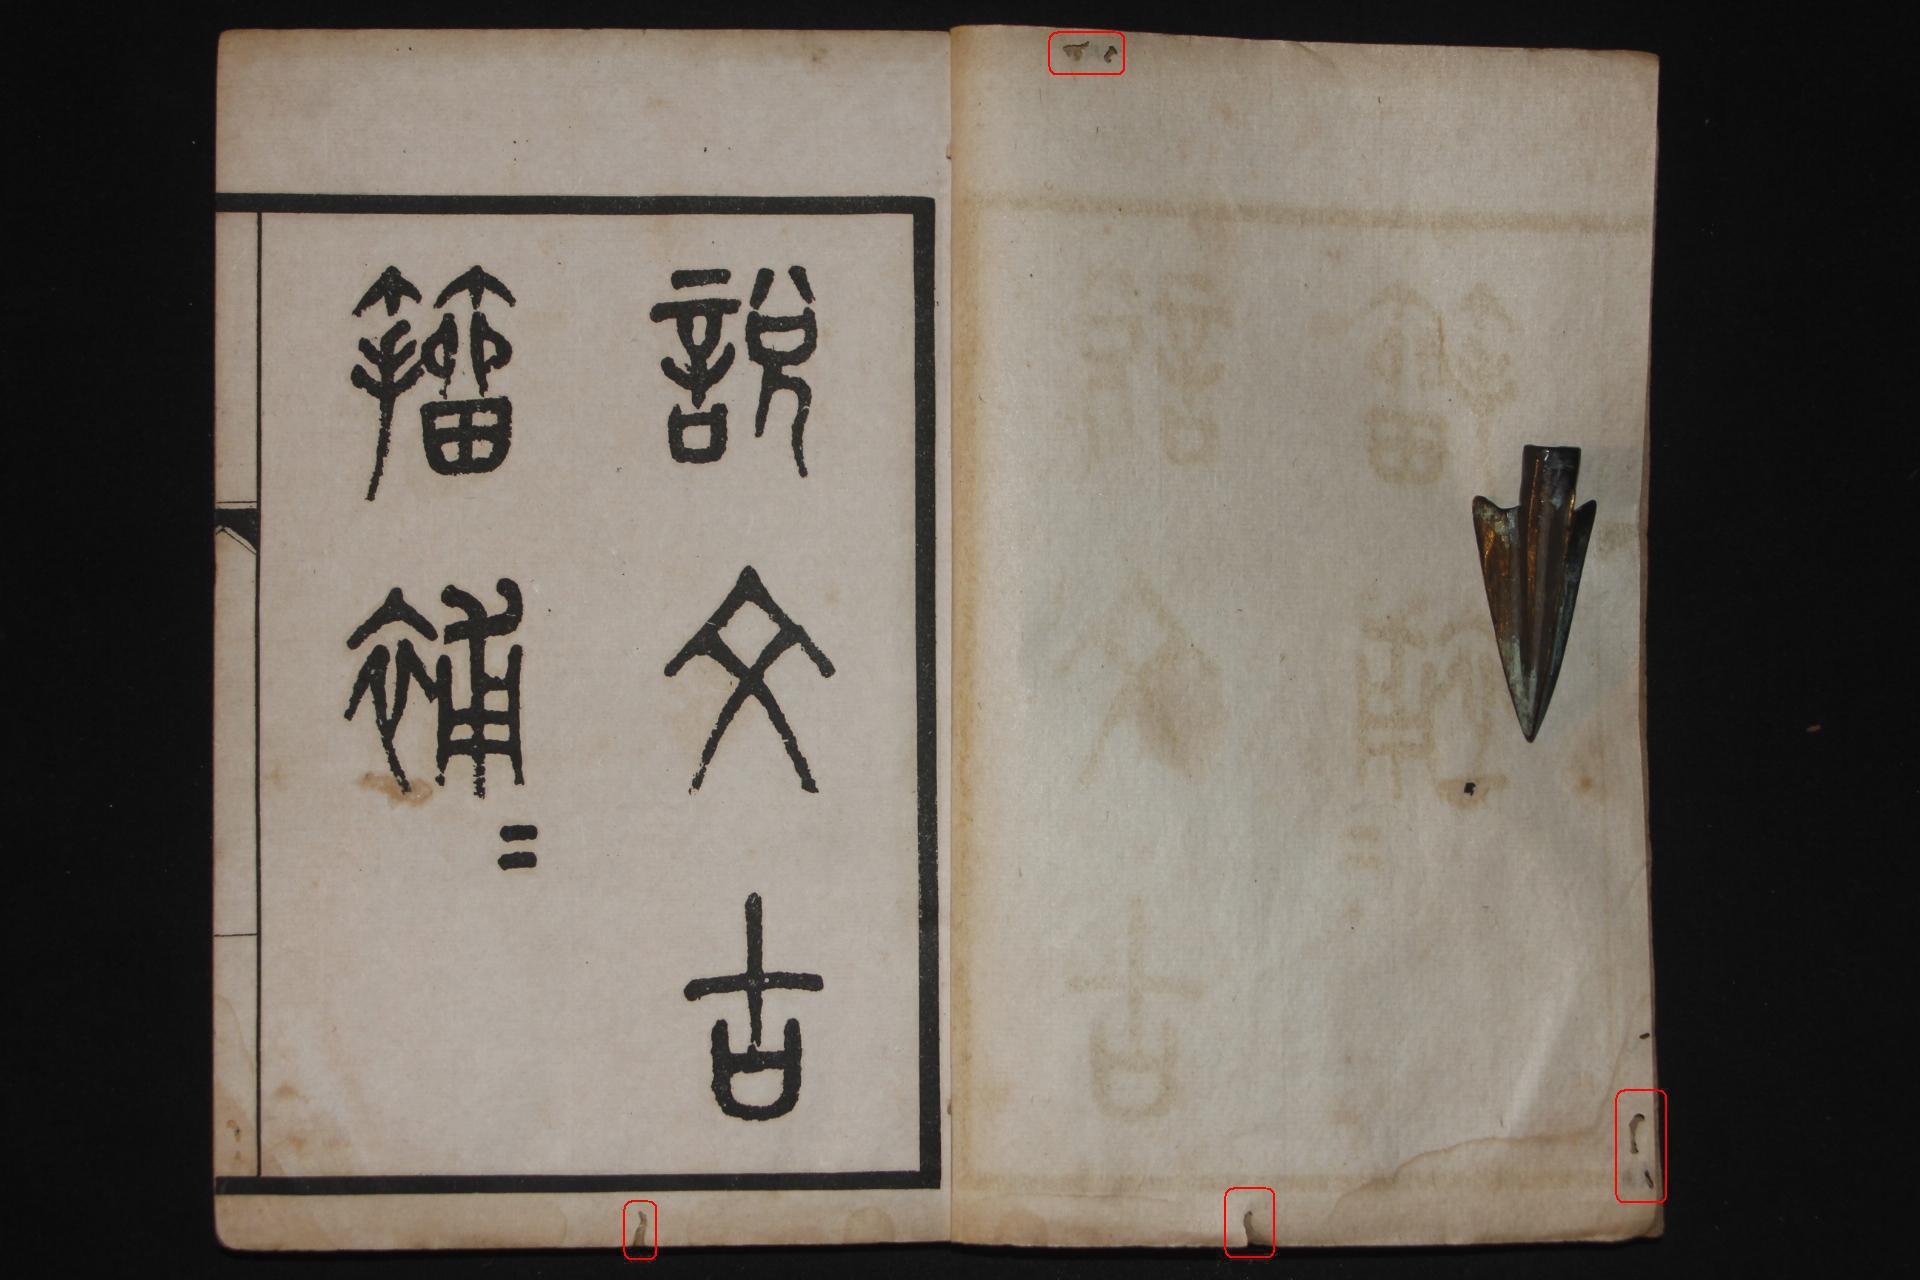 說文古
籀補二